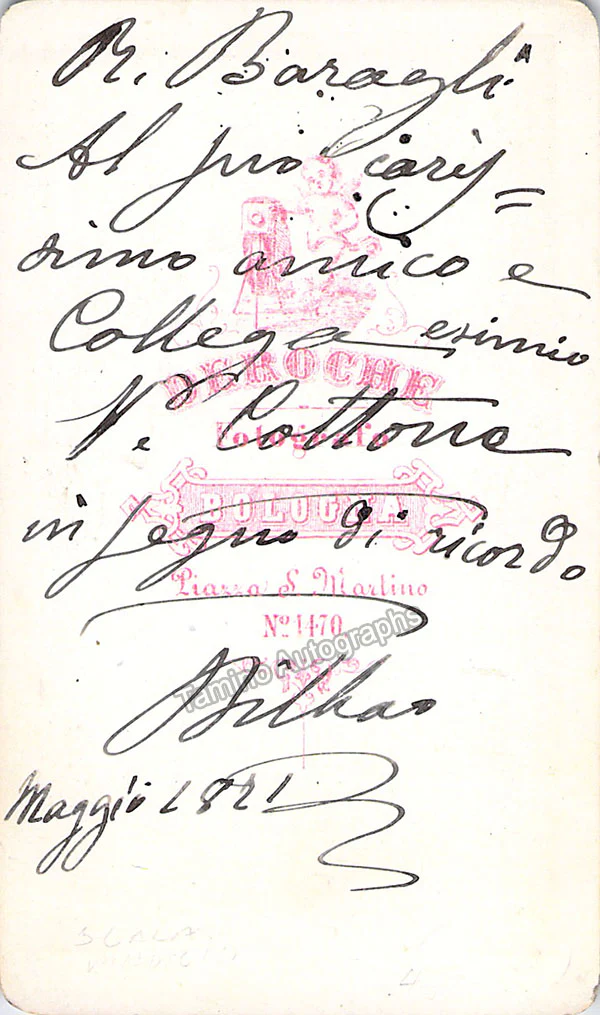 R. Baragli
Al suo caris=
simo amico e
Collega esimio
V. Cottone
in segno di ricordo
Bilbao
Maggio 1881
DEROCHE
Fotografo
BOLOGNA
Piazza S. Martino
No. 1470
Tamino Autographs
SCALA